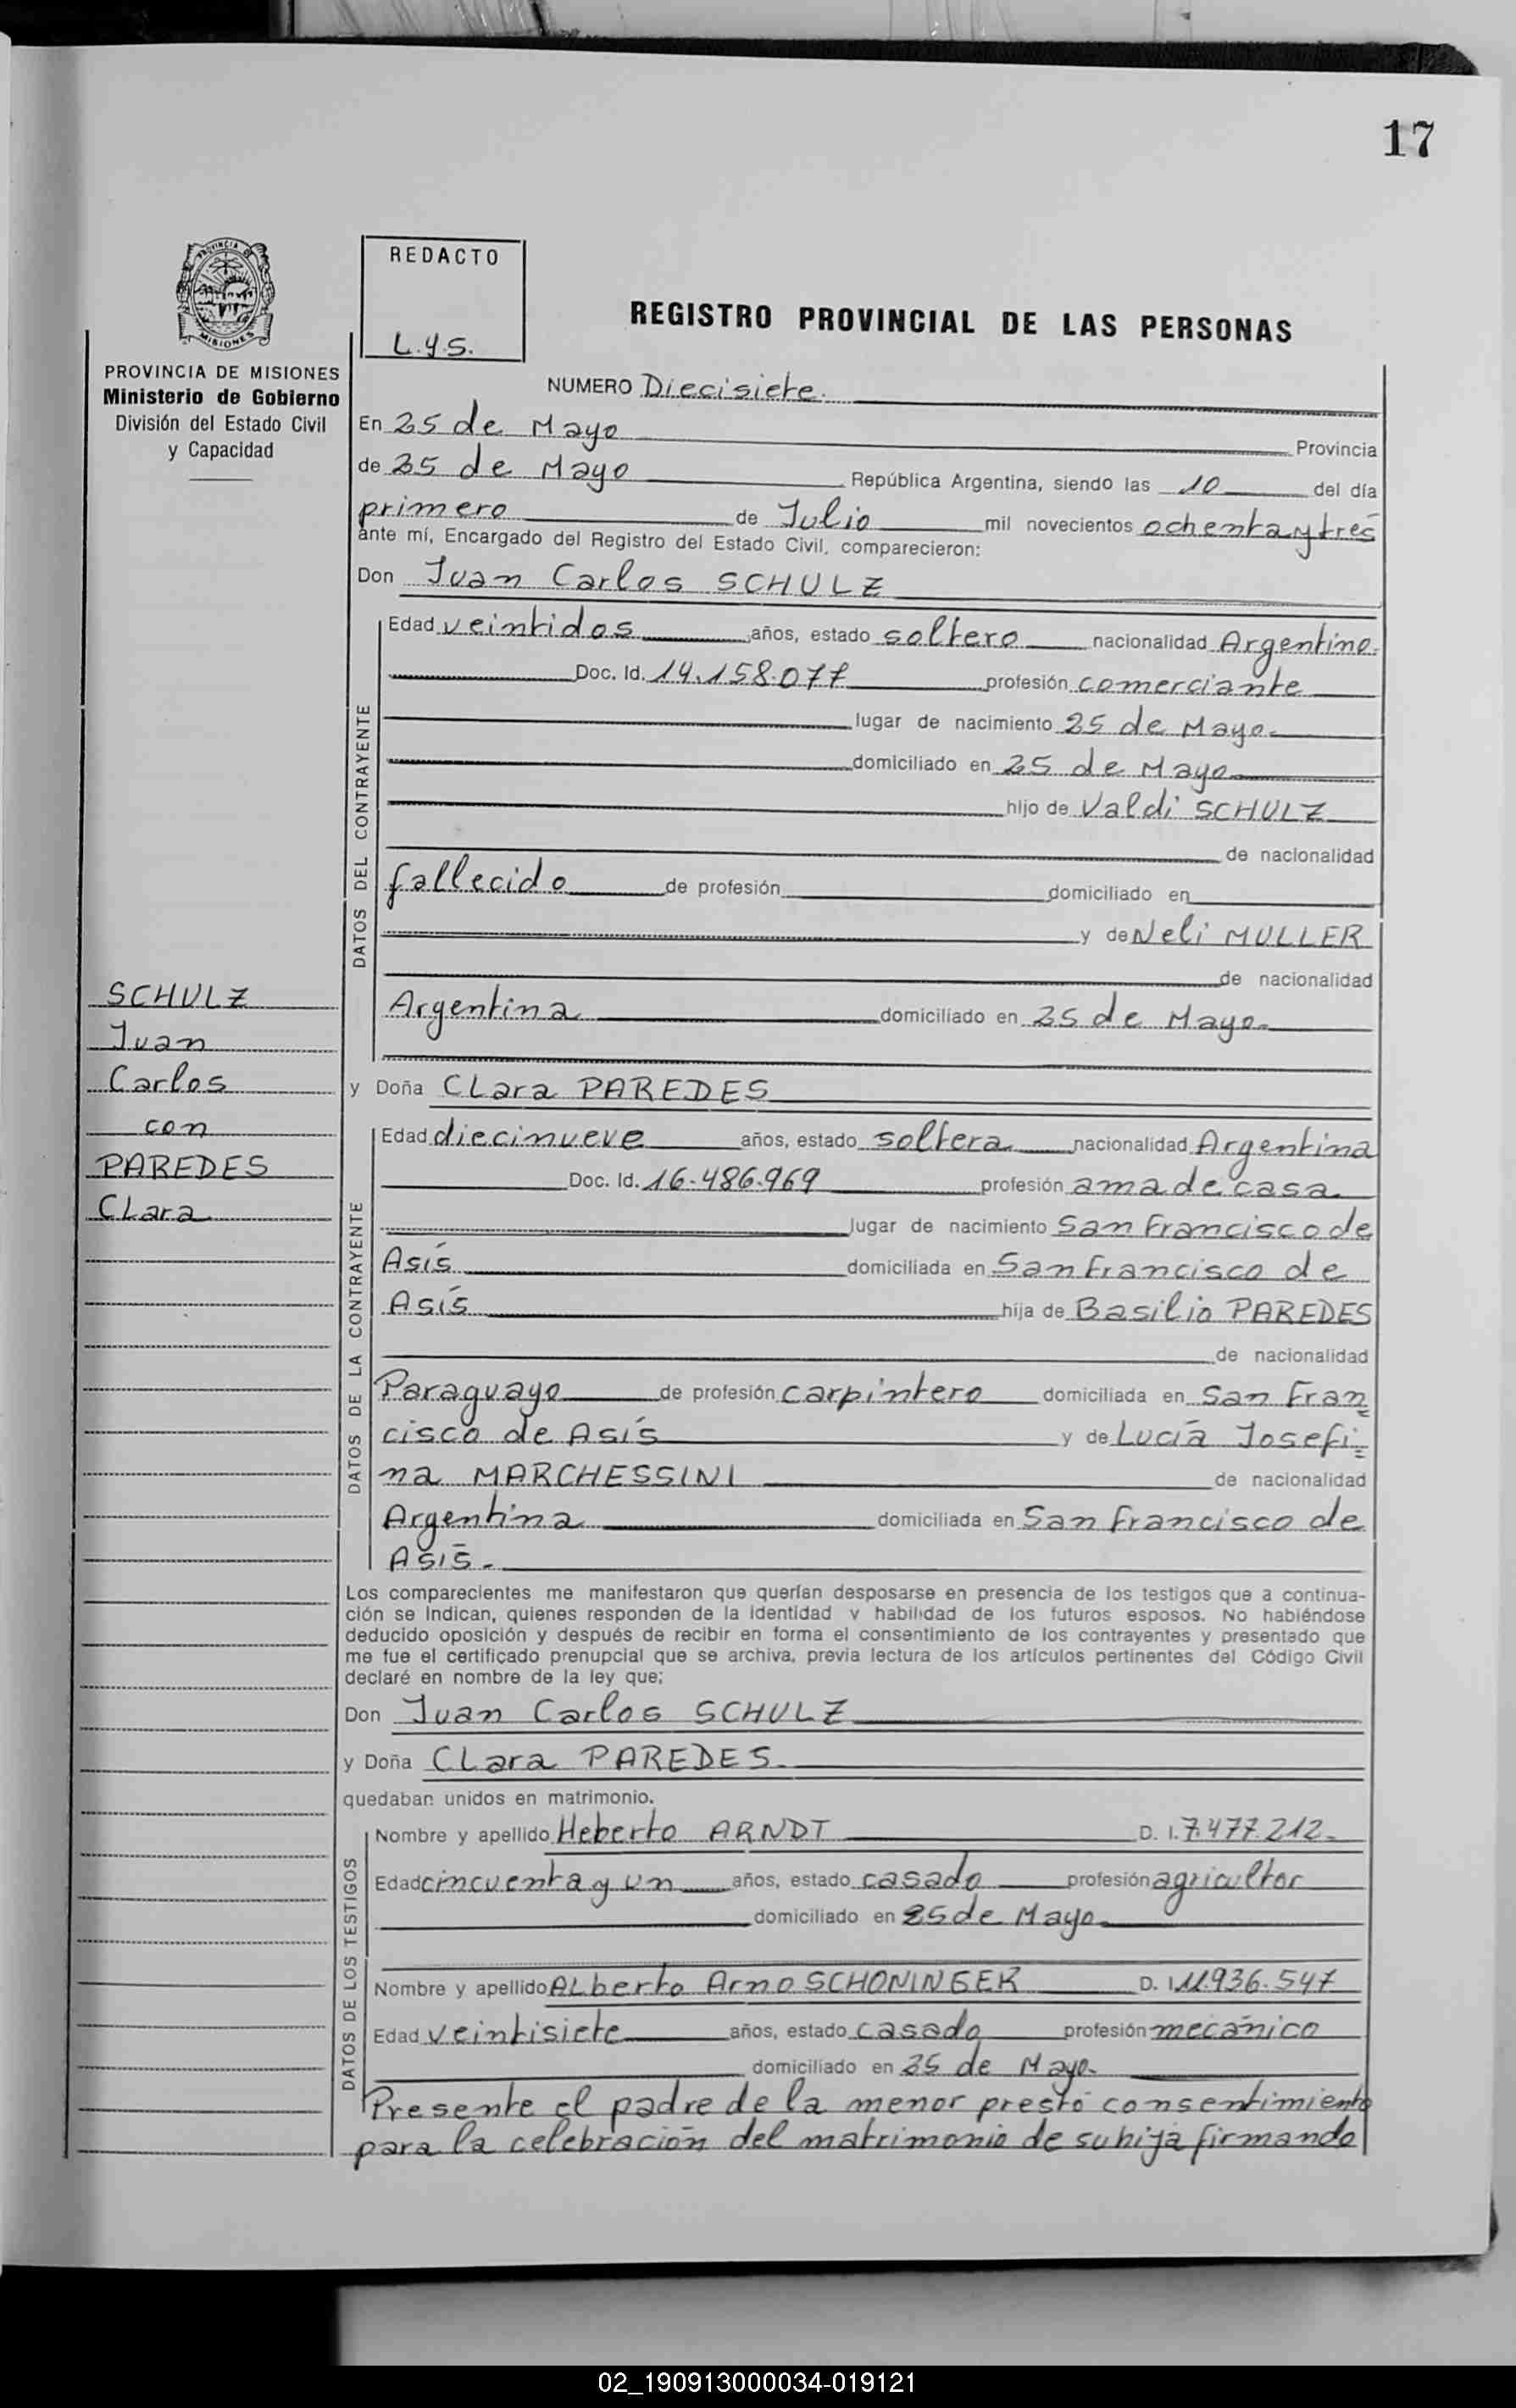 17
PROVINCIA DE
MISIONES
REDACTO
L.Y.S.
REGISTRO PROVINCIAL DE LAS PERSONAS
PROVINCIA DE MISIONES
Ministerio de Gobierno
División del Estado Civil
y Capacidad
NUMERO Diecisiete.
En 25 de Mayo Provincia
de 25 de Mayo República Argentina, siendo las 10 del día
primero de Julio mil novecientos ochenta y tres
ante mí, Encargado del Registro del Estado Civil, comparecieron:
Don Juan Carlos SCHULZ
DATOS DEL CONTRAYENTE
Edad veintidos años, estado soltero nacionalidad Argentino.
Doc. Id. 14.158.077 profesión comerciante
lugar de nacimiento 25 de Mayo.
domiciliado en 25 de Mayo
hijo de Valdi SCHULZ
de nacionalidad
fallecido de profesión domiciliado en
y de Neli MULLER
de nacionalidad
Argentina domiciliado en 25 de Mayo.
SCHULZ
Juan
Carlos
con
PAREDES
Clara
y Doña Clara PAREDES
DATOS DE LA CONTRAYENTE
Edad diecinueve años, estado soltera nacionalidad Argentina
Doc. Id. 16.486.969 profesión ama de casa
lugar de nacimiento San Francisco de
Asís domiciliada en San Francisco de
Asís hija de Basilio PAREDES
de nacionalidad
Paraguayo de profesión carpintero domiciliada en San Fran=
cisco de Asís y de Lucía Josefi=
na MARCHESSINI de nacionalidad
Argentina domiciliada en San Francisco de
Asís.
Los comparecientes me manifestaron que querían desposarse en presencia de los testigos que a continua-
ción se indican, quienes responden de la identidad y habilidad de los futuros esposos. No habiéndose
deducido oposición y después de recibir en forma el consentimiento de los contrayentes y presentado que
me fue el certificado prenupcial que se archiva, previa lectura de los artículos pertinentes del Código Civil
declaré en nombre de la ley que;
Don Juan Carlos SCHULZ
y Doña Clara PAREDES.
quedaban unidos en matrimonio.
DATOS DE LOS TESTIGOS
Nombre y apellido Heberto ARNDT D. I. 7.477.212.
Edad cincuenta y un años, estado casado profesión agricultor
domiciliado en 25 de Mayo
Nombre y apellido Alberto Arno SCHONINGER D. I. 11.936.547
Edad veintisiete años, estado casado profesión mecánico
domiciliado en 25 de Mayo.
Presente el padre de la menor prestó consentimiento
para la celebración del matrimonio de su hija firmando
02_190913000034-019121